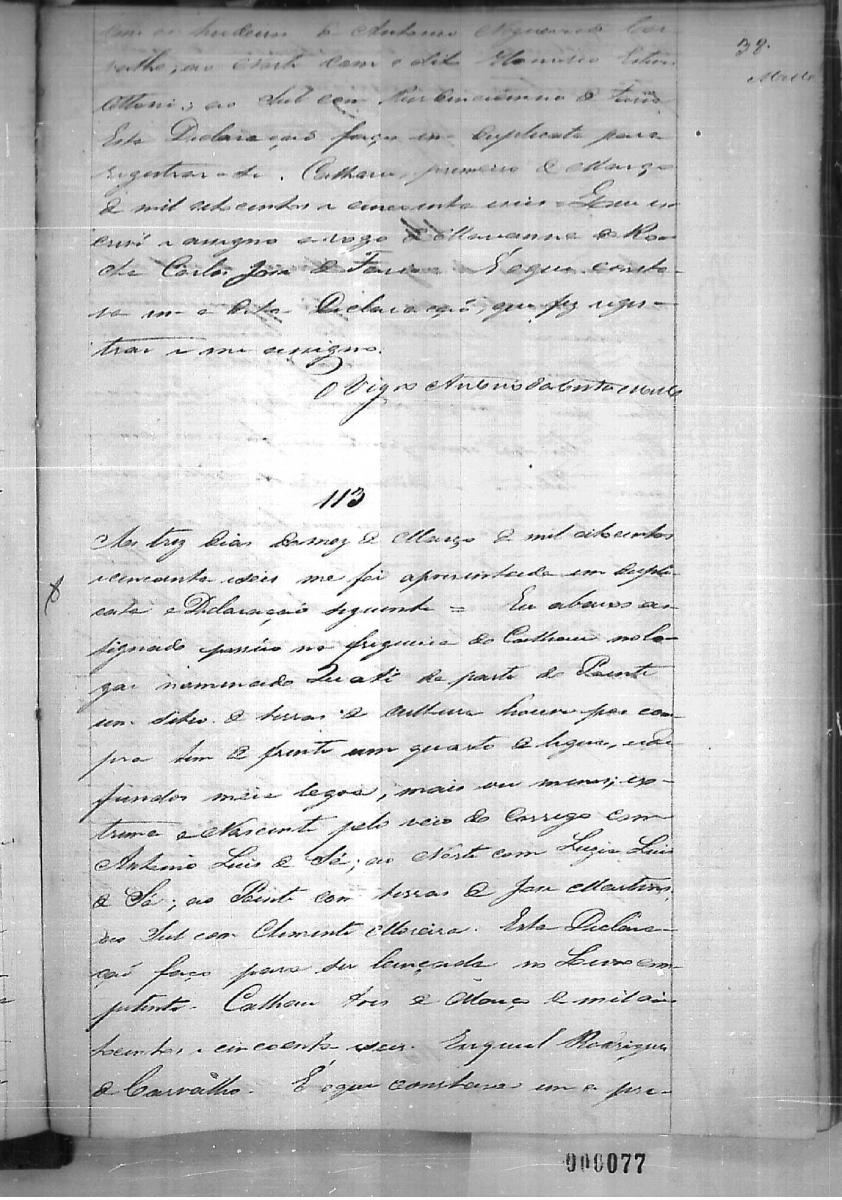 38.
com os herdeiros de Antonio Nogueira de Car-
valho; ao Norte com o dito Honorio Esteves
Ottoni; ao Sul com
Esta Declaração faço em duplicata para
registrar-se. Calhau, primeiro de Março
de mil oitocentos e cincoenta e seis = E que es-
crevi e assigno a rogo de Marianna de Ro-
cha Carlos José de Faria = É o que consta-
va em a dita Declaração, que fiz regis-
trar e me assigno.
O Vigro Antonio da Costa
113
Aos trez dias do mez de Março de mil oitocentos
e cincoenta e seis me foi apresentada em dupli-
cata a Declaração seguinte = Eu abaixo as-
signado possúo na freguesia do Calhau no lo-
gar nomenado da parte do Poente
um sitio de terras de cultura houve por com-
pra tem de frente um quarto de legua, e de
fundos meia legoa, mais ou menos; ex-
trema a Nascente pelo veio do Corrego com
Antonio Luis de Sá; ao Norte com Luzia Luis
de Sá; ao Poente com terras de José Martins,
ao Sul com Clemente Moreira. Esta Declara-
çaõ faço para ser lançada no Livro com-
petente. Calhau tres de Março de mil oi-
tocentos e cincoenta e seis. Ezequiel Rodrigues
de Carvalho. É o que constava em a pre-
000077